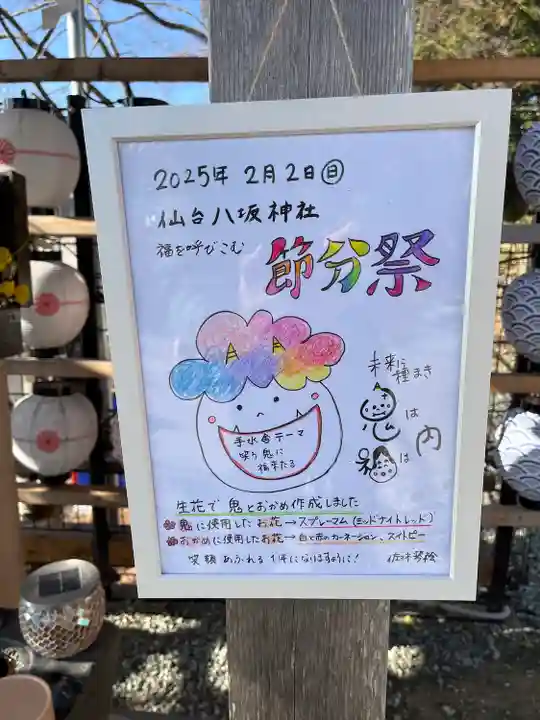 2025年 2月2日(日)
仙台八坂神社
福を呼びこむ
節分祭
未来に種まき
鬼は
福は
内
手水舎テーマ
笑う鬼に
福来たる
生花で 鬼とおかめ作成しました
鬼に使用したお花→スプレーマム(ミッドナイトレッド)
おかめに使用したお花→白と赤のカーネーション、スイトピー
笑顔あふれる1年になりますように!